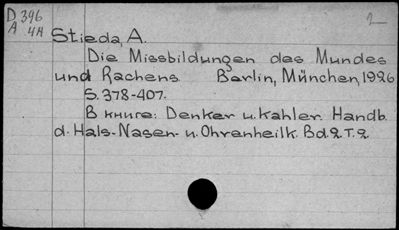 D 396 2
A 4A
Stieda, A.
Die Missbildungen des Mundes
und Rachens. Berlin, München, 1926
S. 378-407.
В книге: Denker u. Kahler. Handb.
d. Hals-Nasen- u. Ohrenheilk. Bd. 2 T. 2